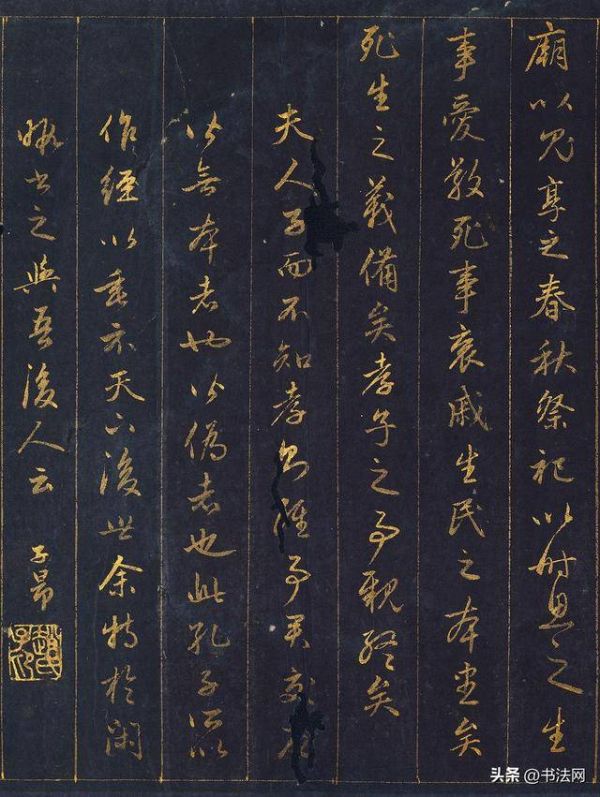 廟以鬼享之春秋祭祀以時思之生
事愛敬死事哀戚生民之本盡矣
死生之義備矣孝子之事親終矣
夫人子而不知孝則雖事君交友
皆無本者也皆偽者也此孔子所以
作經以垂示天下後世余特於閑
暇書之與吾後人云
子昂
趙氏子昂
头条 @书法网